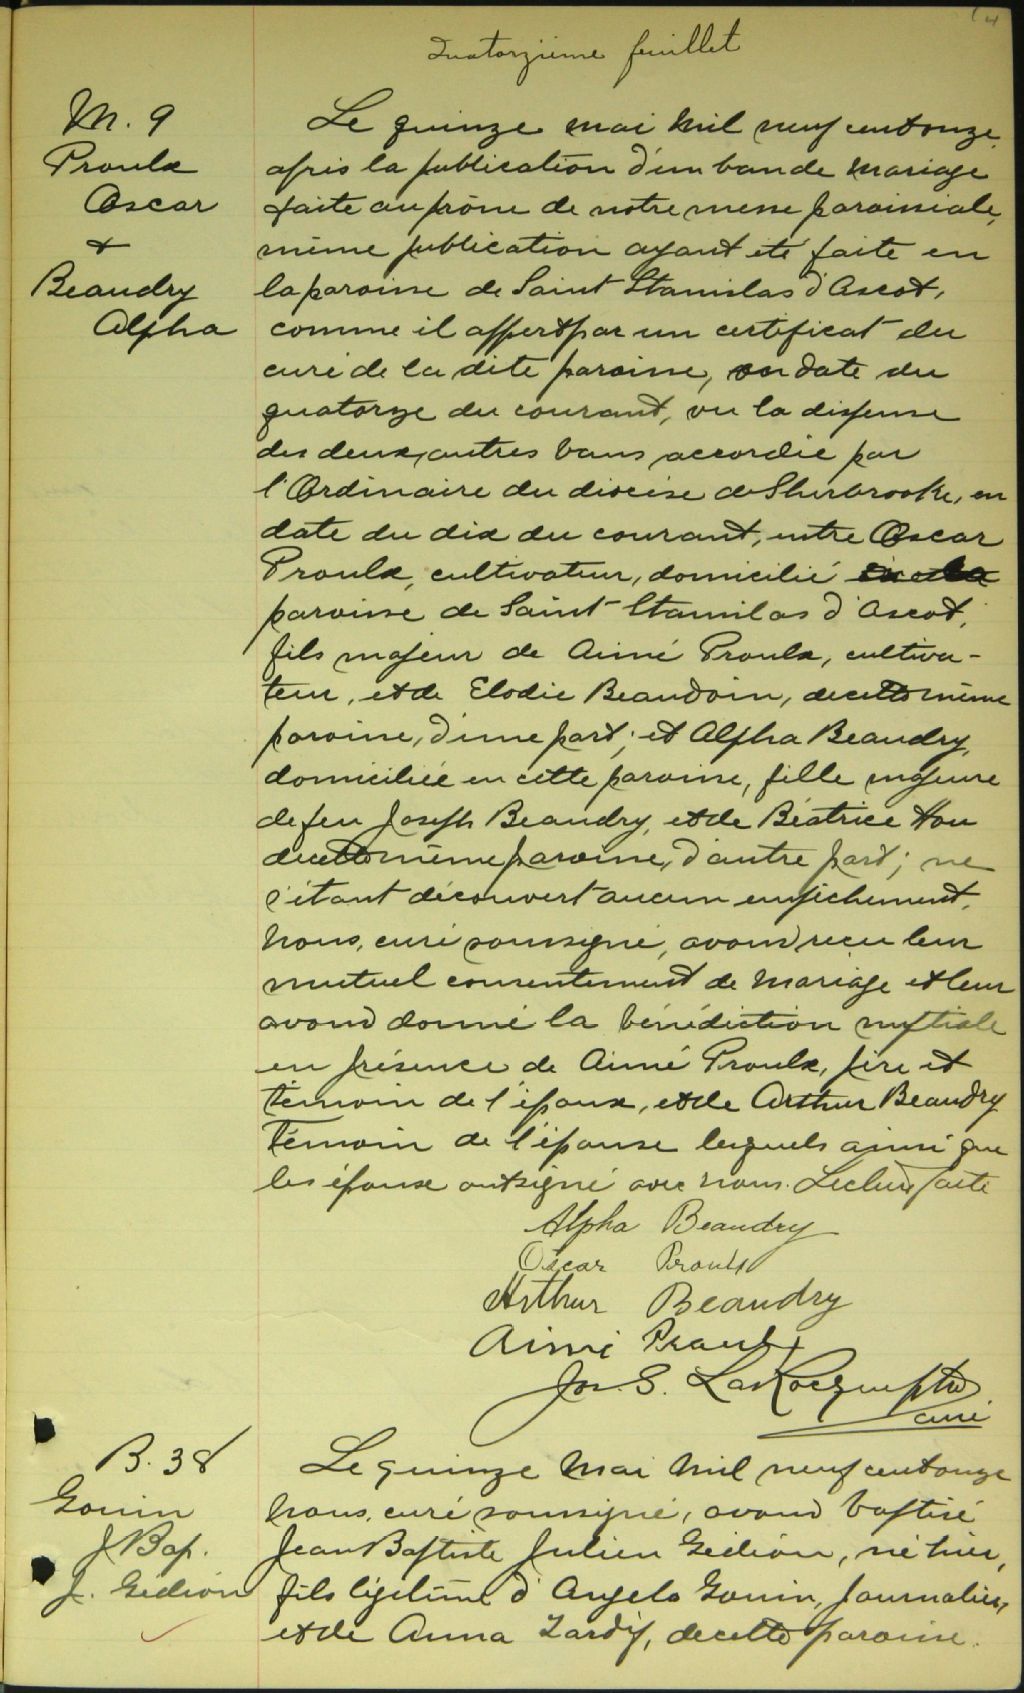 14
Quatorzième feuillet
M. 9
Proulx
Oscar
+
Beaudry
Alpha
Le quinze mai mil neuf cent onze,
après la publication d'un ban de mariage
faite au prône de notre messe paroissiale,
même publication ayant été faite en
la paroisse de Saint Stanislas d'Ascot,
comme il appert par un certificat du
curé de la dite paroisse, en date du
quatorze du courant, vu la dispense
des deux autres bans accordée par
l'Ordinaire du diocèse de Sherbrooke, en
date du dix du courant, entre Oscar
Proulx, cultivateur, domicilié
paroisse de Saint Stanislas d'Ascot,
fils majeur de Aimé Proulx, cultiva-
teur, et de Elodie Beaudoin, de cette même
paroisse, d'une part; et Alpha Beaudry,
domiciliée en cette paroisse, fille majeure
de feu Joseph Beaudry, et de Béatrice Hou
de cette même paroisse, d'autre part; ne
s'étant découvert aucun empêchement,
Nous, curé soussigné, avons reçu leur
mutuel consentement de mariage et leur
avons donné la bénédiction nuptiale
en présence de Aimé Proulx, père et
témoin de l'époux, et de Arthur Beaudry
Témoin de l'épouse lesquels ainsi que
les époux ont signé avec nous. Lecture faite
Alpha Beaudry
Oscar Proulx
Arthur Beaudry
Aimé Proulx
Jos. S.
curé
B. 38
Gouin
J. Bap.
J. Gédéon
Le quinze Mai Mil neuf cent onze
Nous, curé soussigné, avons baptisé
Jean Baptiste Julien Gédéon, né hier,
fils légitime d'Angelo Gouin, Journalier,
et de Anna Tardif, de cette paroisse.